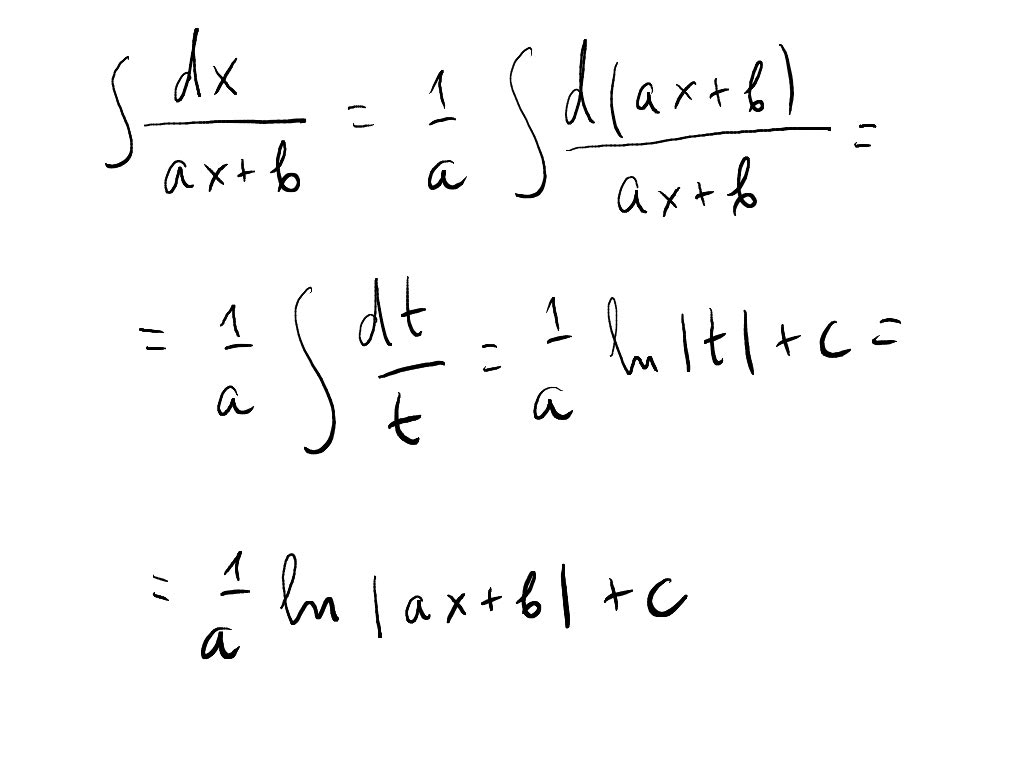 ∫ dx/(ax+b) = 1/a ∫ d(ax+b)/(ax+b) =
= 1/a ∫ dt/t = 1/a ln|t| + c =
= 1/a ln|ax+b| + c